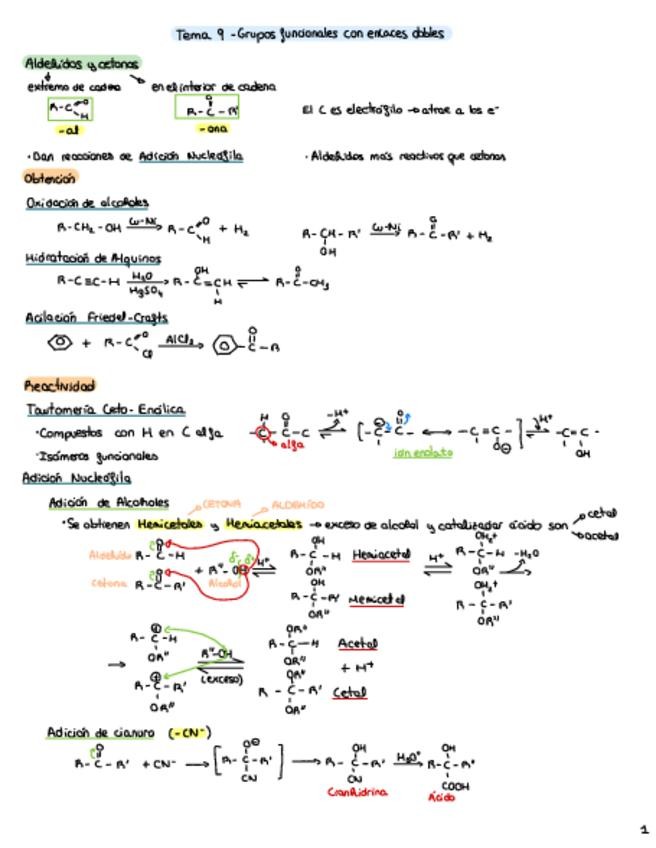 Tema 9 - Grupos funcionales con enlaces dobles
Aldehídos y cetonas
extremo de cadena en el interior de cadena
R-C=O H R-C-R' O El C es electrófilo → atrae a los e⁻
-al -ona
· Dan reacciones de Adición Nucleófila · Aldehídos más reactivos que cetonas
Obtención
Oxidación de alcoholes
R-CH₂-OH Cu-Ni → R-C=O H + H₂ R-CH-R' OH Cu-Ni → R-C-R' O + H₂
Hidratación de Alquinos
R-C≡C-H H₂O HgSO₄ → R-C=C-H OH H ⇌ R-C-CH₃ O
Acilación Friedel-Crafts
+ R-C=O Cl AlCl₃ → C-R O
Reactividad
Tautomería Ceto-Enólica
· Compuestos con H en C alfa alfa -H⁺ ion enolato H⁺
· Isómeros funcionales
Adición Nucleófila
Adición de Alcoholes
CETONA ALDEHÍDO
· Se obtienen Hemicetales y Hemiacetales → exceso de alcohol y catalizador ácido son cetal acetal
Aldehído R-C-H O + R''-OH H⁺ ⇌ OH R-C-H OR'' Hemiacetal H⁺ ⇌ OH₂⁺ R-C-H OR'' -H₂O
Cetona R-C-R' O Alcohol OH R-C-R' OR'' Hemicetal OH₂⁺ R-C-R' OR''
→ R-C-H OR'' R''-OH OR'' R-C-H OR'' Acetal
(exceso) + H⁺
R-C-R' OR'' OR'' R-C-R' OR'' Cetal
Adición de cianuro (-CN⁻)
R-C-R' O + CN⁻ → [R-C-R' O⊖ CN] → R-C-R' OH CN H₃O⁺ → R-C-R' OH COOH
Cianhidrina Ácido
1